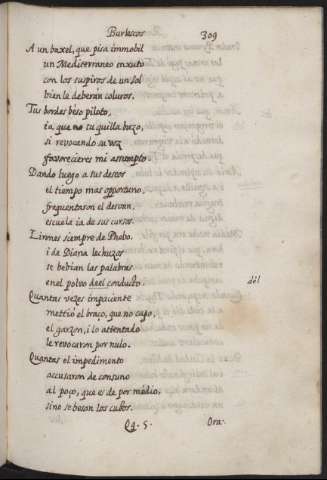 Burlescos 309
A un baxel, que pisa inmobil
un Mediterraneo enxuto
con los suspiros de un sol
bien le deberán coluros.
Tus bordes beso piloto,
ia que no tu quilla buzo,
si revocando su voz
favorecieres mi assumpto.
Dando luego a sus deseos
el tiempo mas opportuno,
frequentaron el desvan,
escuela ia de sus cursos.
Lirones siempre de Phebo,
i de Diana lechuzos
se bebian las palabras
en el polvo de el conducto. dél
Quantas vezes impaciente
mettió el braço, que no cupo,
el garzon, i lo attentado
le revocaron por nulo.
Quantas el impedimento
accusaron de consuno
al poço, que es de por medio,
si no se besan los cubos.
Qq. 5. Ora.